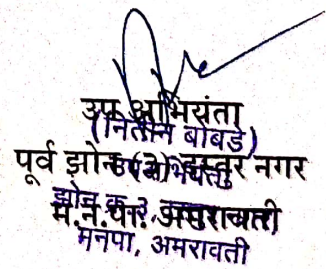 उप अभियंता
(नितीन बोबडे)
पूर्व झोन (३) दस्तुर नगर
उपअभियंता
झोन क्र. ३,
म.न.पा. अमरावती
मनपा, अमरावती